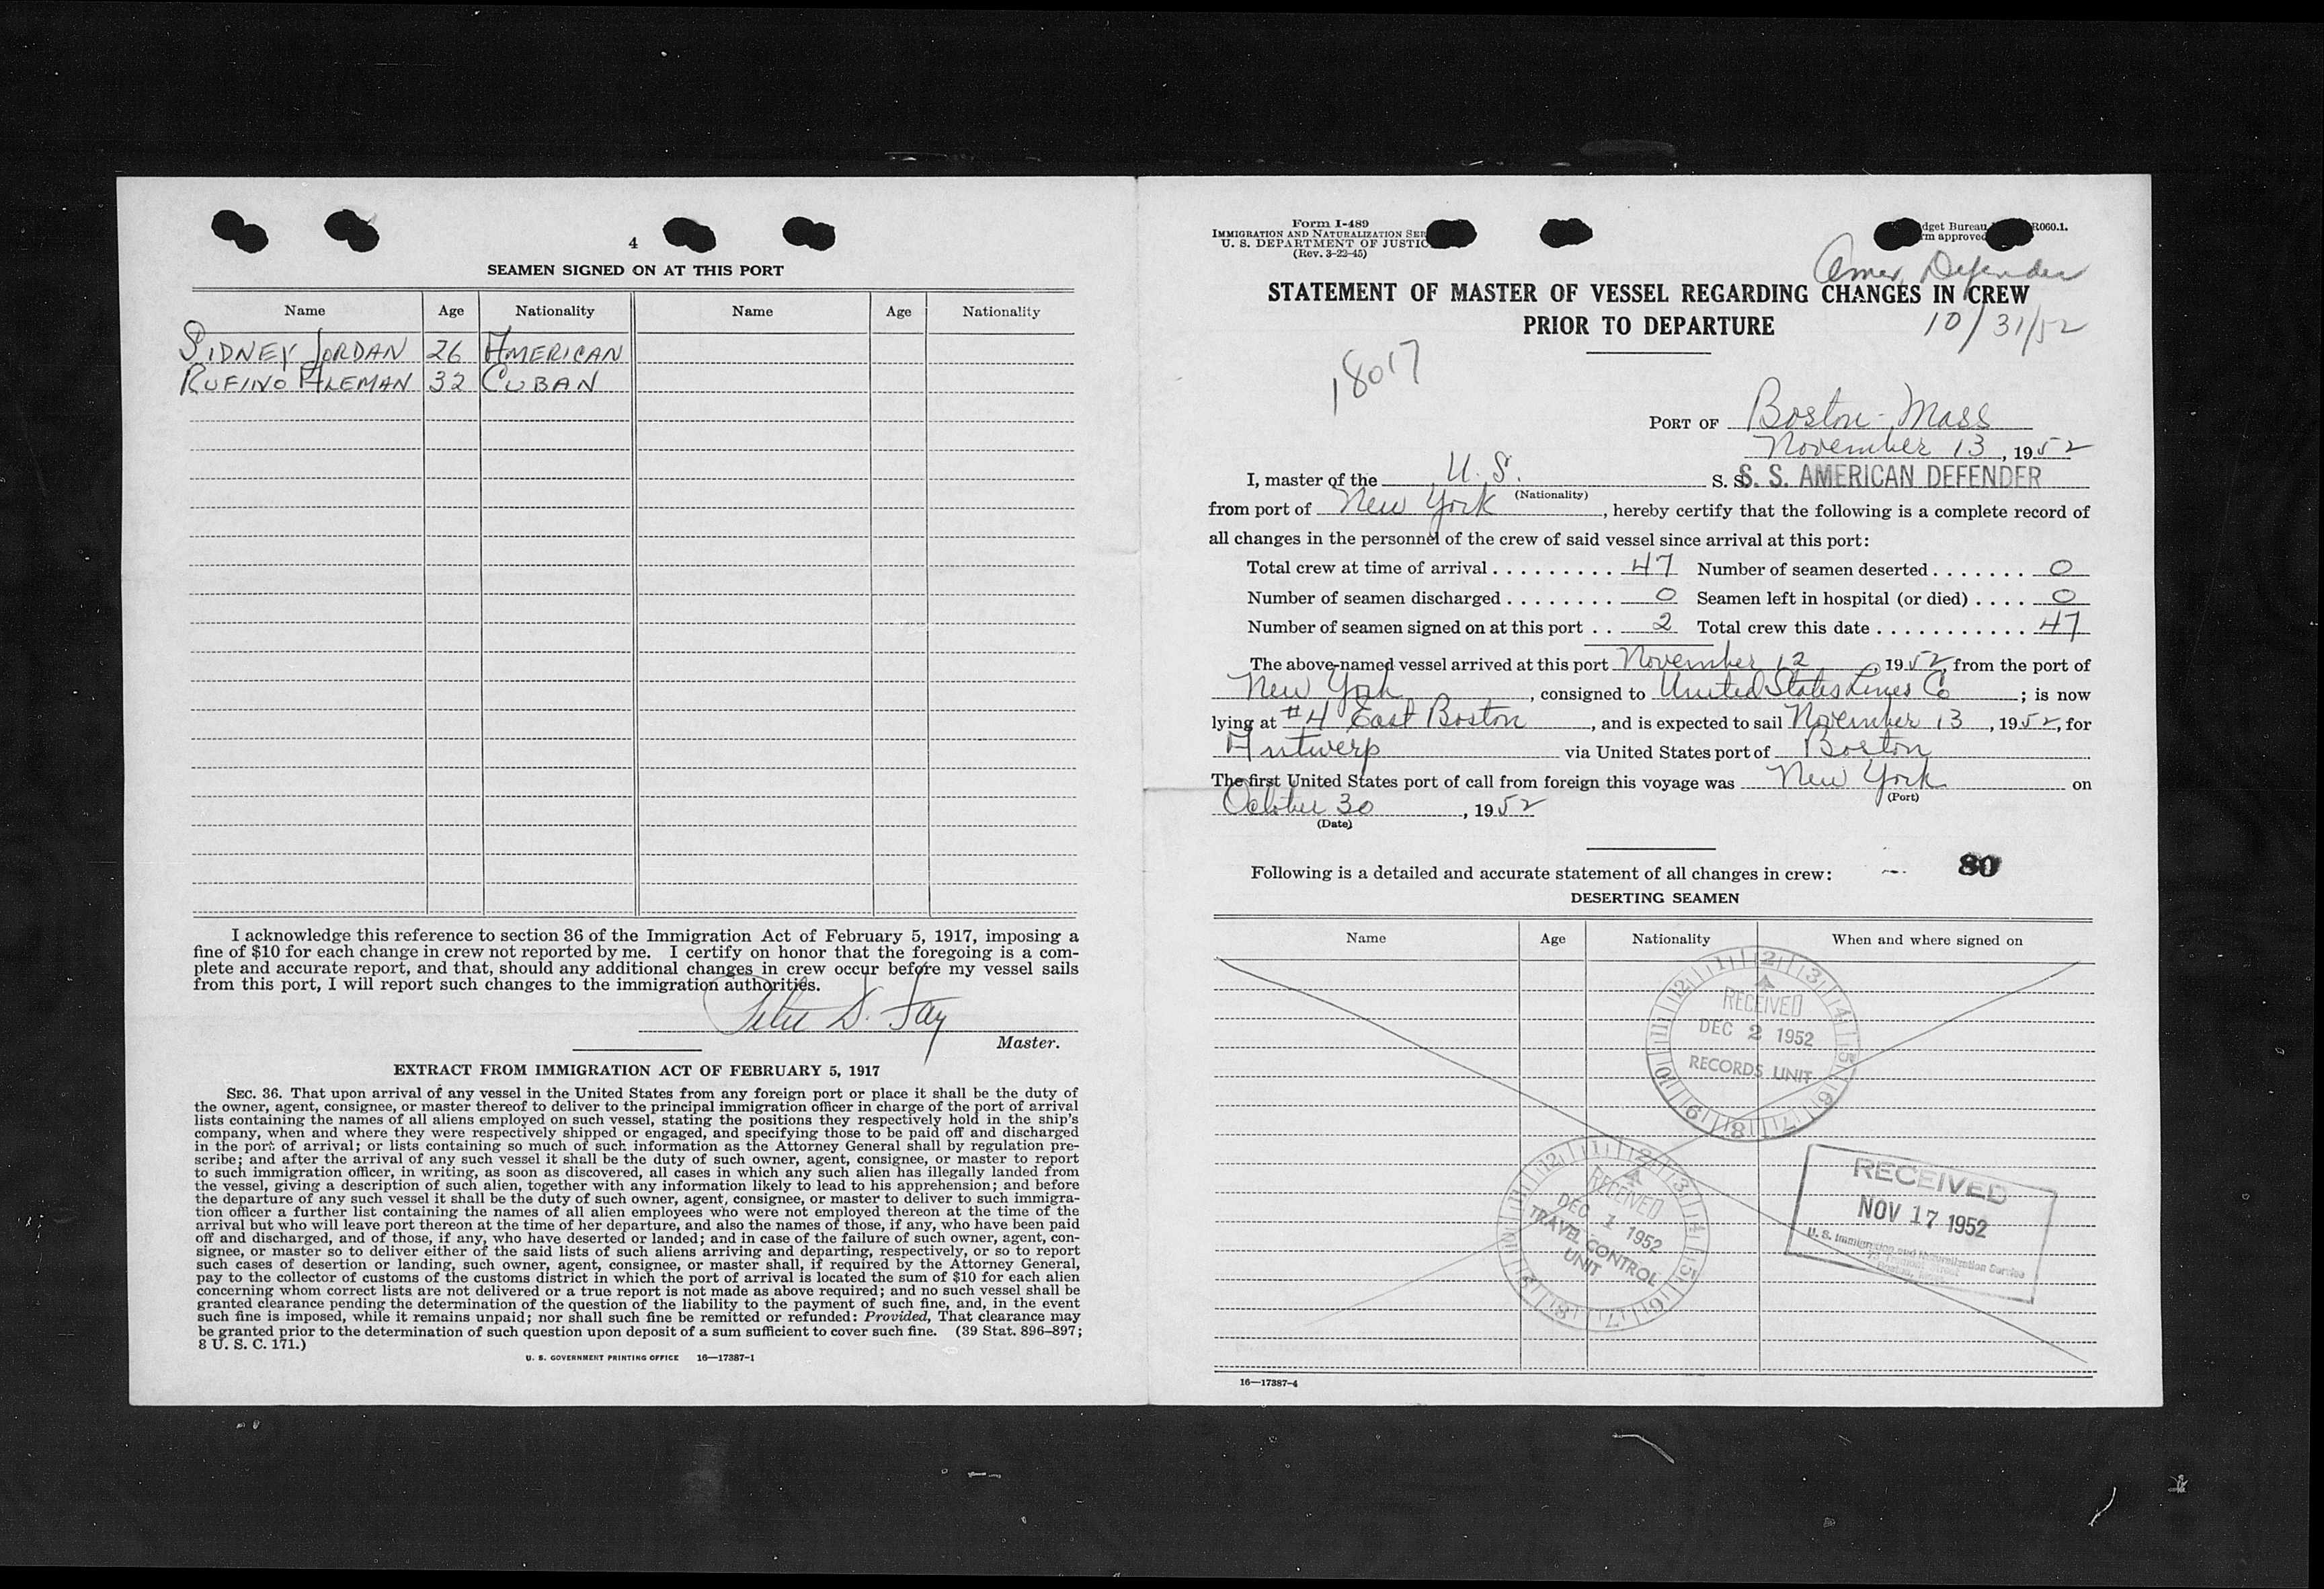 4
SEAMEN SIGNED ON AT THIS PORT
Name Age Nationality Name Age Nationality
SIDNEY JORDAN 26 AMERICAN
RUFINO ALEMAN 32 CUBAN
I acknowledge this reference to section 36 of the Immigration Act of February 5, 1917, imposing a
fine of $10 for each change in crew not reported by me. I certify on honor that the foregoing is a com-
plete and accurate report, and that, should any additional changes in crew occur before my vessel sails
from this port, I will report such changes to the immigration authorities.
Peter D. Fay
Master.
EXTRACT FROM IMMIGRATION ACT OF FEBRUARY 5, 1917
SEC. 36. That upon arrival of any vessel in the United States from any foreign port or place it shall be the duty of
the owner, agent, consignee, or master thereof to deliver to the principal immigration officer in charge of the port of arrival
lists containing the names of all aliens employed on such vessel, stating the positions they respectively hold in the ship's
company, when and where they were respectively shipped or engaged, and specifying those to be paid off and discharged
in the port of arrival; or lists containing so much of such information as the Attorney General shall by regulation pre-
scribe; and after the arrival of any such vessel it shall be the duty of such owner, agent, consignee, or master to report
to such immigration officer, in writing, as soon as discovered, all cases in which any such alien has illegally landed from
the vessel, giving a description of such alien, together with any information likely to lead to his apprehension; and before
the departure of any such vessel it shall be the duty of such owner, agent, consignee, or master to deliver to such immigra-
tion officer a further list containing the names of all alien employees who were not employed thereon at the time of the
arrival but who will leave port thereon at the time of her departure, and also the names of those, if any, who have been paid
off and discharged, and of those, if any, who have deserted or landed; and in case of the failure of such owner, agent, con-
signee, or master so to deliver either of the said lists of such aliens arriving and departing, respectively, or so to report
such cases of desertion or landing, such owner, agent, consignee, or master shall, if required by the Attorney General,
pay to the collector of customs of the customs district in which the port of arrival is located the sum of $10 for each alien
concerning whom correct lists are not delivered or a true report is not made as above required; and no such vessel shall be
granted clearance pending the determination of the question of the liability to the payment of such fine, and, in the event
such fine is imposed, while it remains unpaid; nor shall such fine be remitted or refunded: Provided, That clearance may
be granted prior to the determination of such question upon deposit of a sum sufficient to cover such fine. (39 Stat. 896–897;
8 U. S. C. 171.)
U. S. GOVERNMENT PRINTING OFFICE 16—17387-1
Form I-489
IMMIGRATION AND NATURALIZATION SER
U. S. DEPARTMENT OF JUSTIC
(Rev. 3-22-45)
dget Bureau R060.1.
rm approved
Amer. Defender
STATEMENT OF MASTER OF VESSEL REGARDING CHANGES IN CREW
PRIOR TO DEPARTURE
10/31/52
18017
PORT OF Boston - Mass
November 13, 1952
I, master of the U. S. S. S. S. S. AMERICAN DEFENDER
(Nationality)
from port of New York, hereby certify that the following is a complete record of
all changes in the personnel of the crew of said vessel since arrival at this port:
Total crew at time of arrival . . . . . . . . . 47 Number of seamen deserted . . . . . . . 0
Number of seamen discharged . . . . . . . . 0 Seamen left in hospital (or died) . . . . 0
Number of seamen signed on at this port . . 2 Total crew this date . . . . . . . . . . . 47
The above-named vessel arrived at this port November 12, 1952, from the port of
New York, consigned to United States Lines Co; is now
lying at #4 East Boston, and is expected to sail November 13, 1952, for
Antwerp via United States port of Boston
The first United States port of call from foreign this voyage was New York on
(Port)
October 30, 1952
(Date)
Following is a detailed and accurate statement of all changes in crew: 80
DESERTING SEAMEN
Name Age Nationality When and where signed on
RECEIVED
DEC 2 1952
RECORDS UNIT
RECEIVED
DEC 1 1952
TRAVEL CONTROL
UNIT
RECEIVED
NOV 17 1952
U. S. Immigration and Naturalization Service
16—17387-4